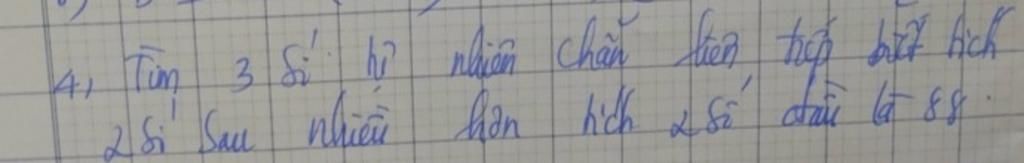 4, Tìm 3 số tự nhiên chẵn liên tiếp biết tích
2 số sau nhiều hơn tích 2 số đầu là 88.